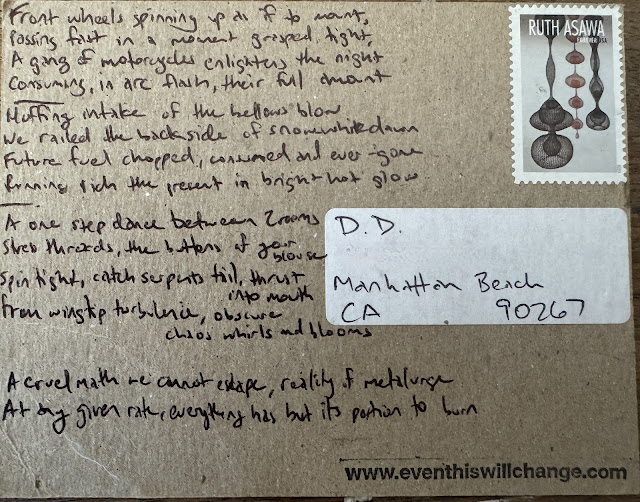 Front wheels spinning up as if to mount,
Passing fast in a moment grasped tight,
A gang of motorcycles enlightens the night
Consuming, in arc flash, their full amount
Huffing intake of the bellows blow
We railed the backside of snow white dawn
Future fuel chopped, consumed and ever-gone
Running rich the present in bright hot glow
A one step dance between 2 rooms
threads, the buttons of your
blouse
Spin tight, catch serpents tail, thrust
into mouth
From wingtip turbulence, obscure
chaos whirls and blooms
A cruel math we cannot escape, reality of
At any given rate, everything has but its portion to burn
RUTH ASAWA
D.D.
Manhattan Beach
CA 90267
www.eventhiswillchange.com